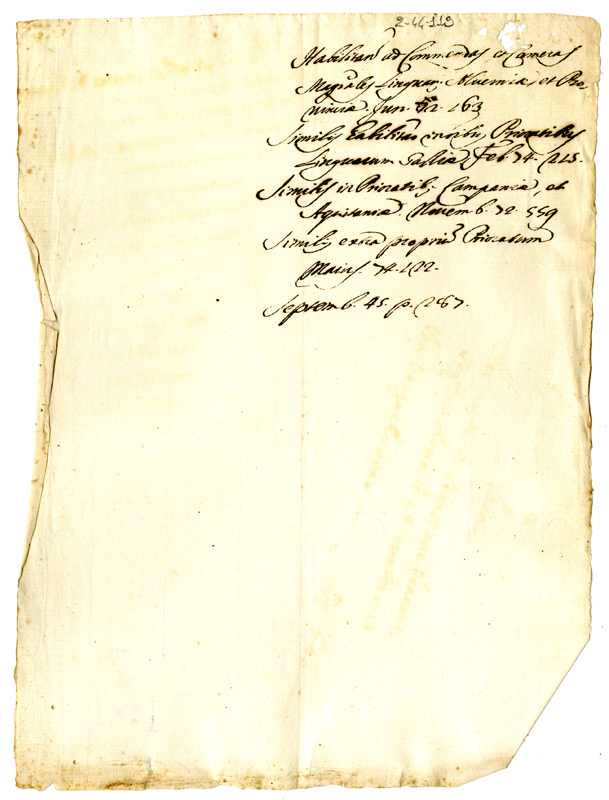 2-44-113
Habilitan.s ad Commendas et Cameras
Mag.ales Linguar. Alverniæ, et Pro-
vinciæ. Jun. 72. 163
Similis habilitao in oibus Prioratibus
Linguarum Galliæ, Feb. 74. 215.
Similis in Prioratib. Campaniæ, et
Aquitaniæ. Novemb. 72. 559
Similis extra proprium Prioratum
Maius. 74. 122.
Septemb. 45. p. 287.